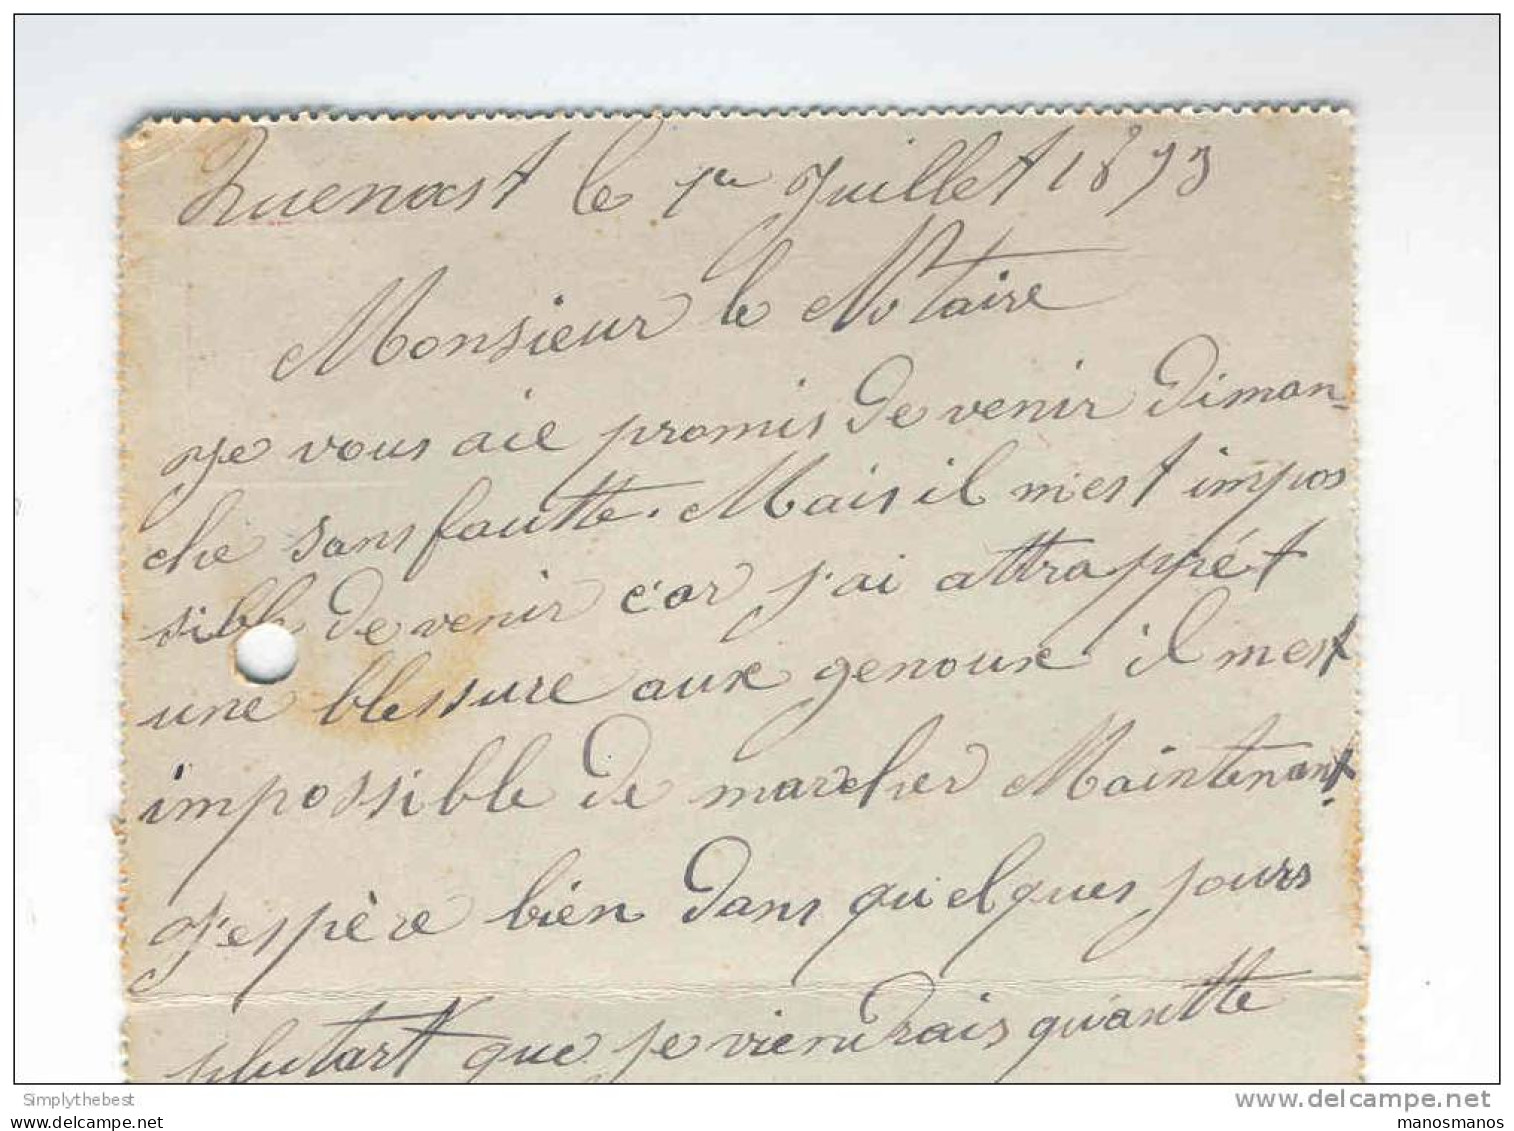 Quenast le 1er Juillet 1893
Monsieur le Notaire
Je vous ait promis de venir Diman-
che sans fautte. Mais il m'est impos
sible de venir c'ar j'ai attrappét
une blessure aux genoux il m'est
impossible de marcher Maintenant.
J'espère bien dans quélques jours
plutart que je viendrais quantte
Simplythebest
www.delcampe.net
manosmanos